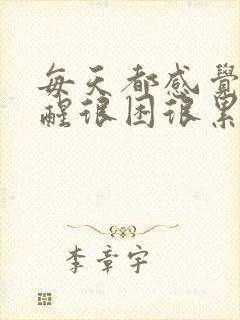 每天都感覺
醒很困很累
李章宇